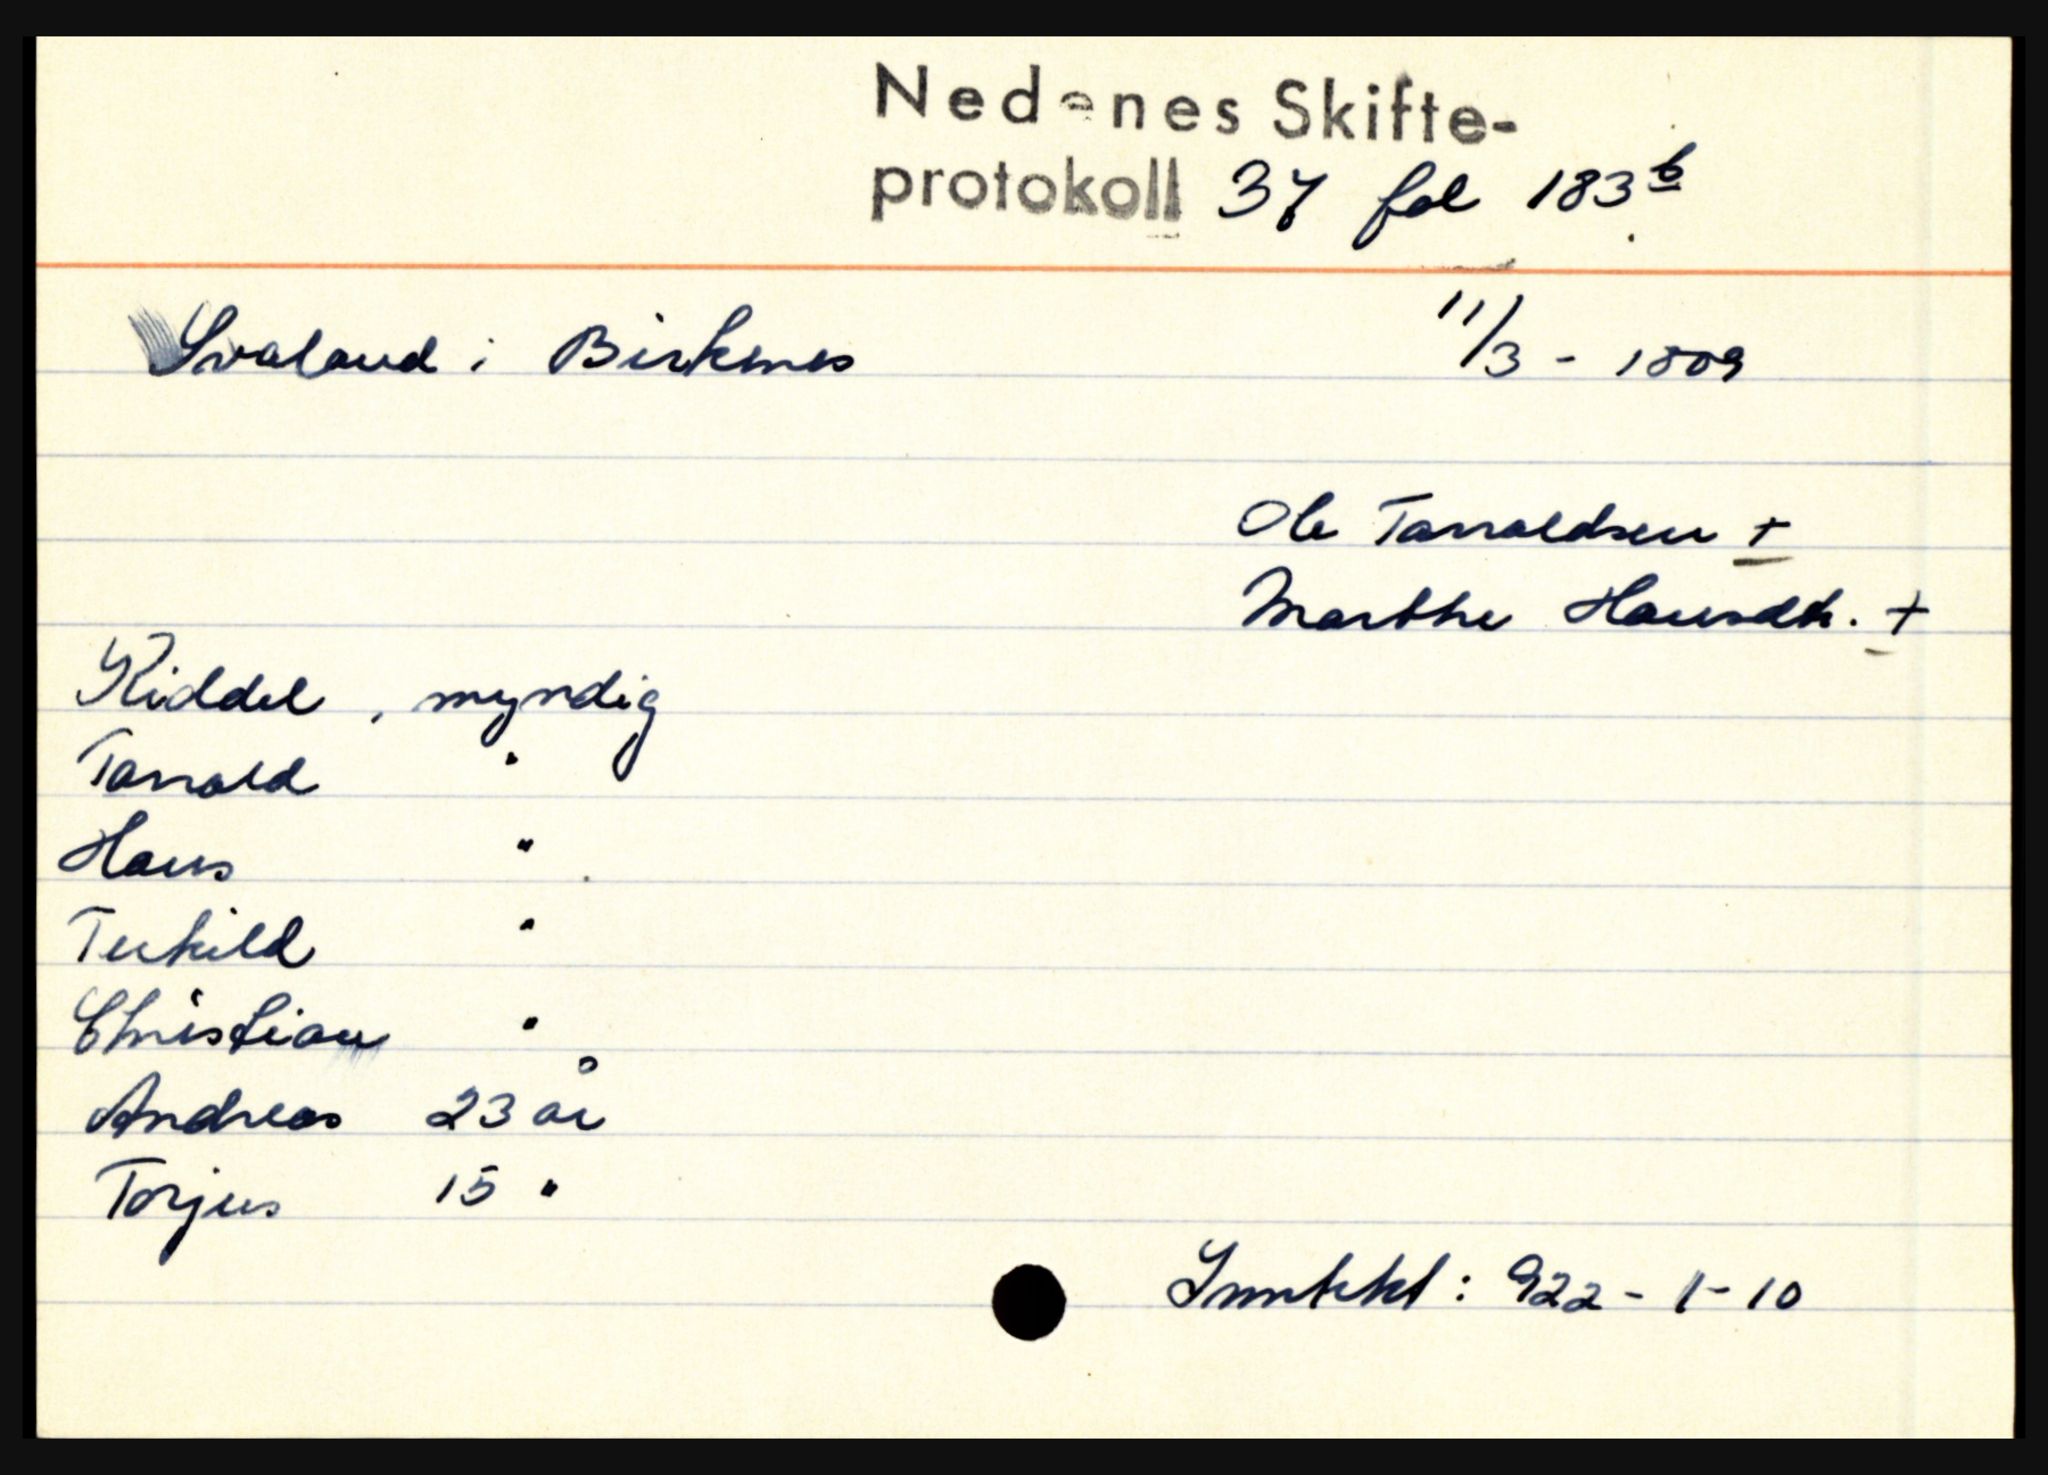 Nedenes Skifte-
protokoll 37 fol 183 b
Svaland i Birkenes 11/3 - 1809
Ole Tarraldsen +
Marthe Hansdtr. +
Kiddel, myndig
Tarrald "
Hans "
Terkild "
Christian "
Andreas 23 år
Torjus 15 "
922 - 1 - 10